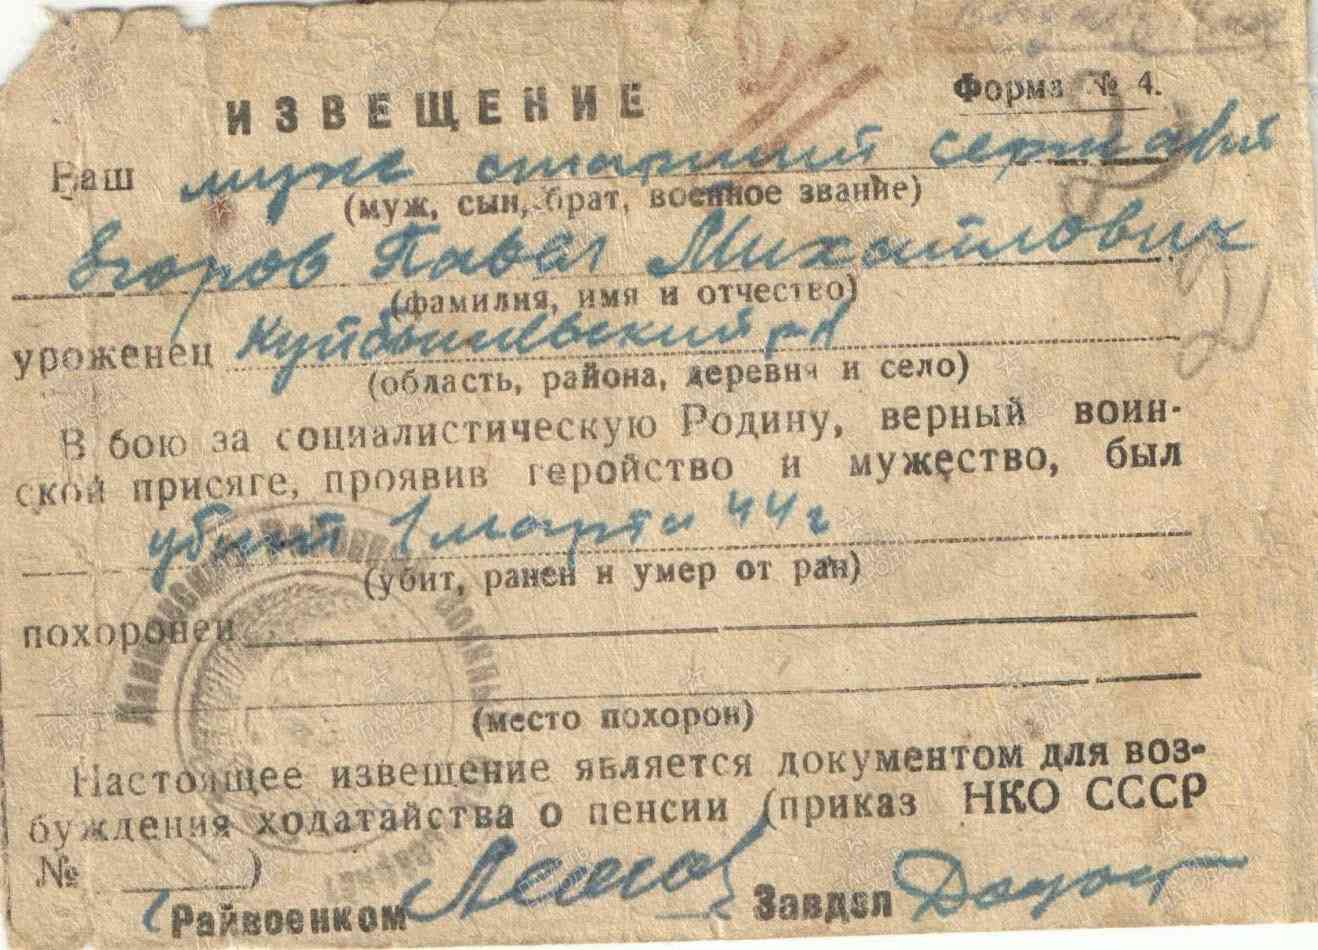 ИЗВЕЩЕНИЕ
Форма № 4.
Ваш муж старший сержант
(муж, сын, брат, военное звание)
Егоров Павел Михайлович
(фамилия, имя и отчество)
уроженец Куйбышевский р-н
(область, района, деревня и село)
В бою за социалистическую Родину, верный воин-
ской присяге, проявив геройство и мужество, был
убит 1 марта 44 г
(убит, ранен и умер от ран)
похоронен
(место похорон)
Настоящее извещение является документом для воз-
буждения ходатайства о пенсии (приказ НКО СССР
№ )
Райвоенком
Завдел